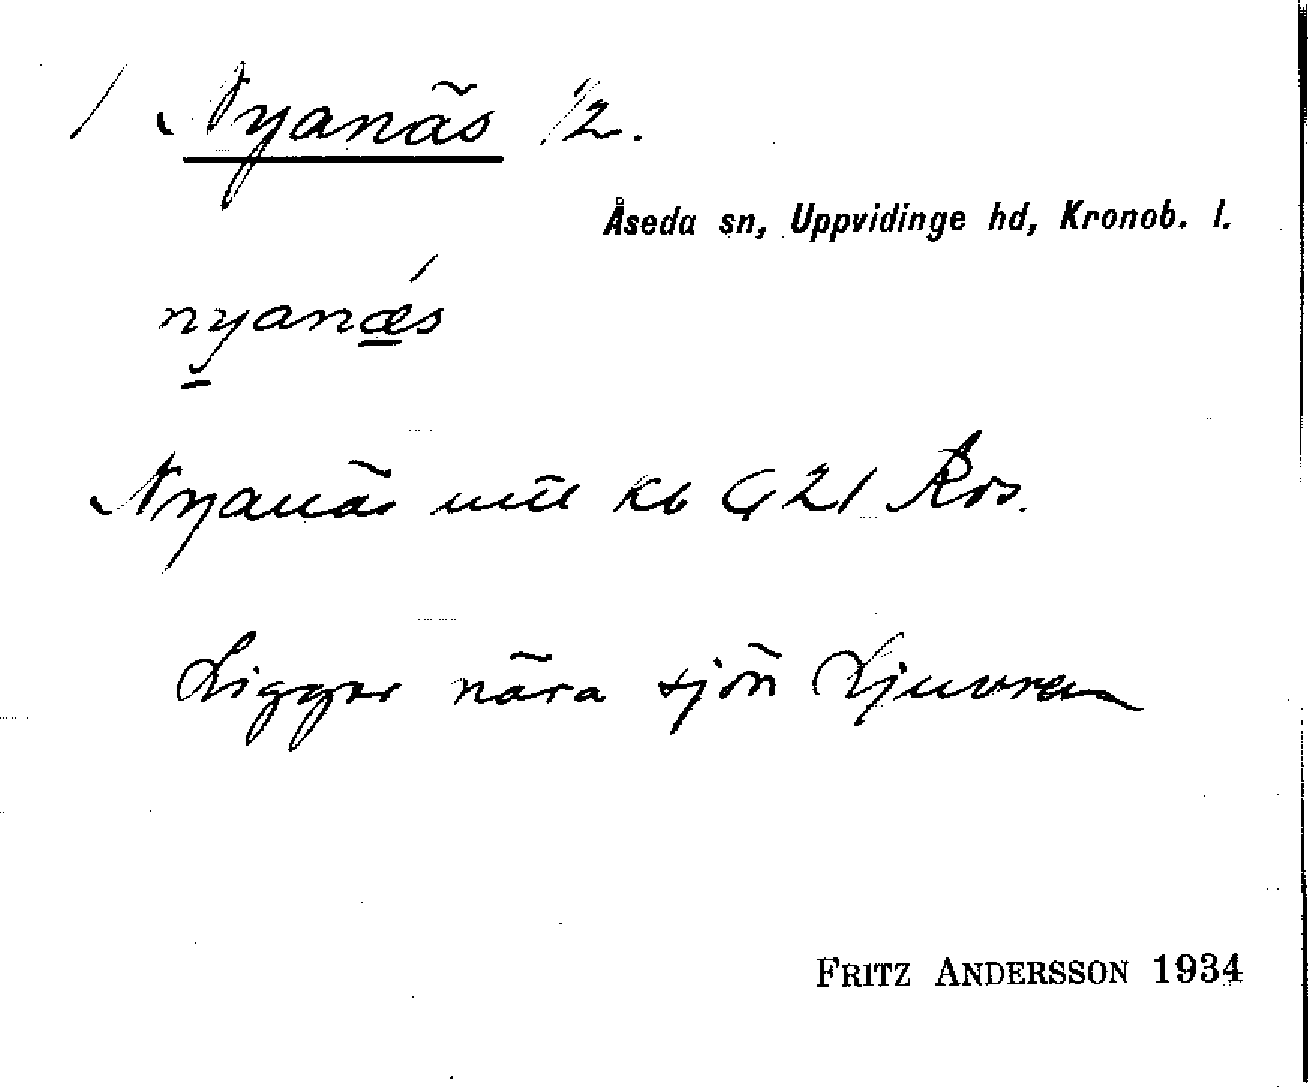 / Nyanäs 1/2.
Åseda sn, Uppvidinge hd, Kronob. l.
nyanǽs
Nyanäs
Ligger nära sjön Ljuvren
FRITZ ANDERSSON 1934